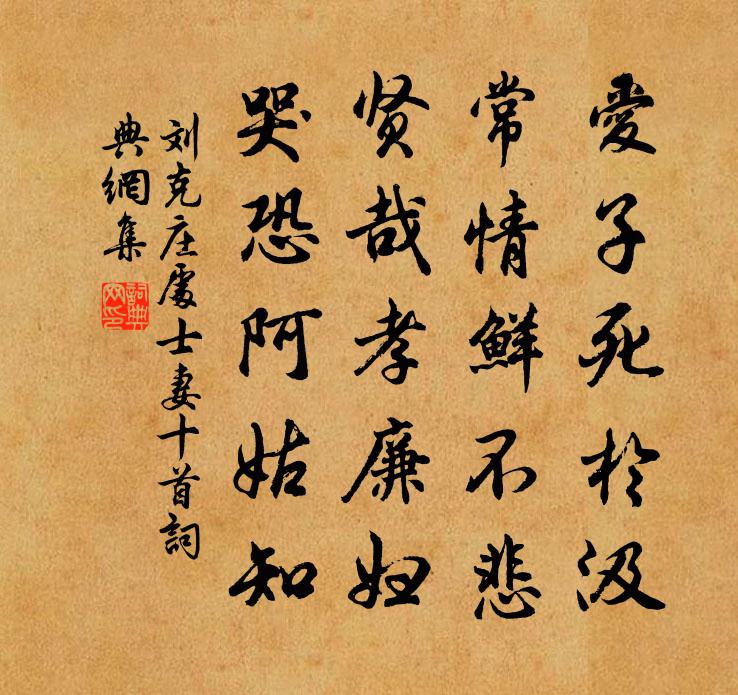 愛子死於汲
常情鮮不悲
贤哉孝廉妇
哭恐阿姑知
刘克庄處士妻十首詞
典網集
詞典網印